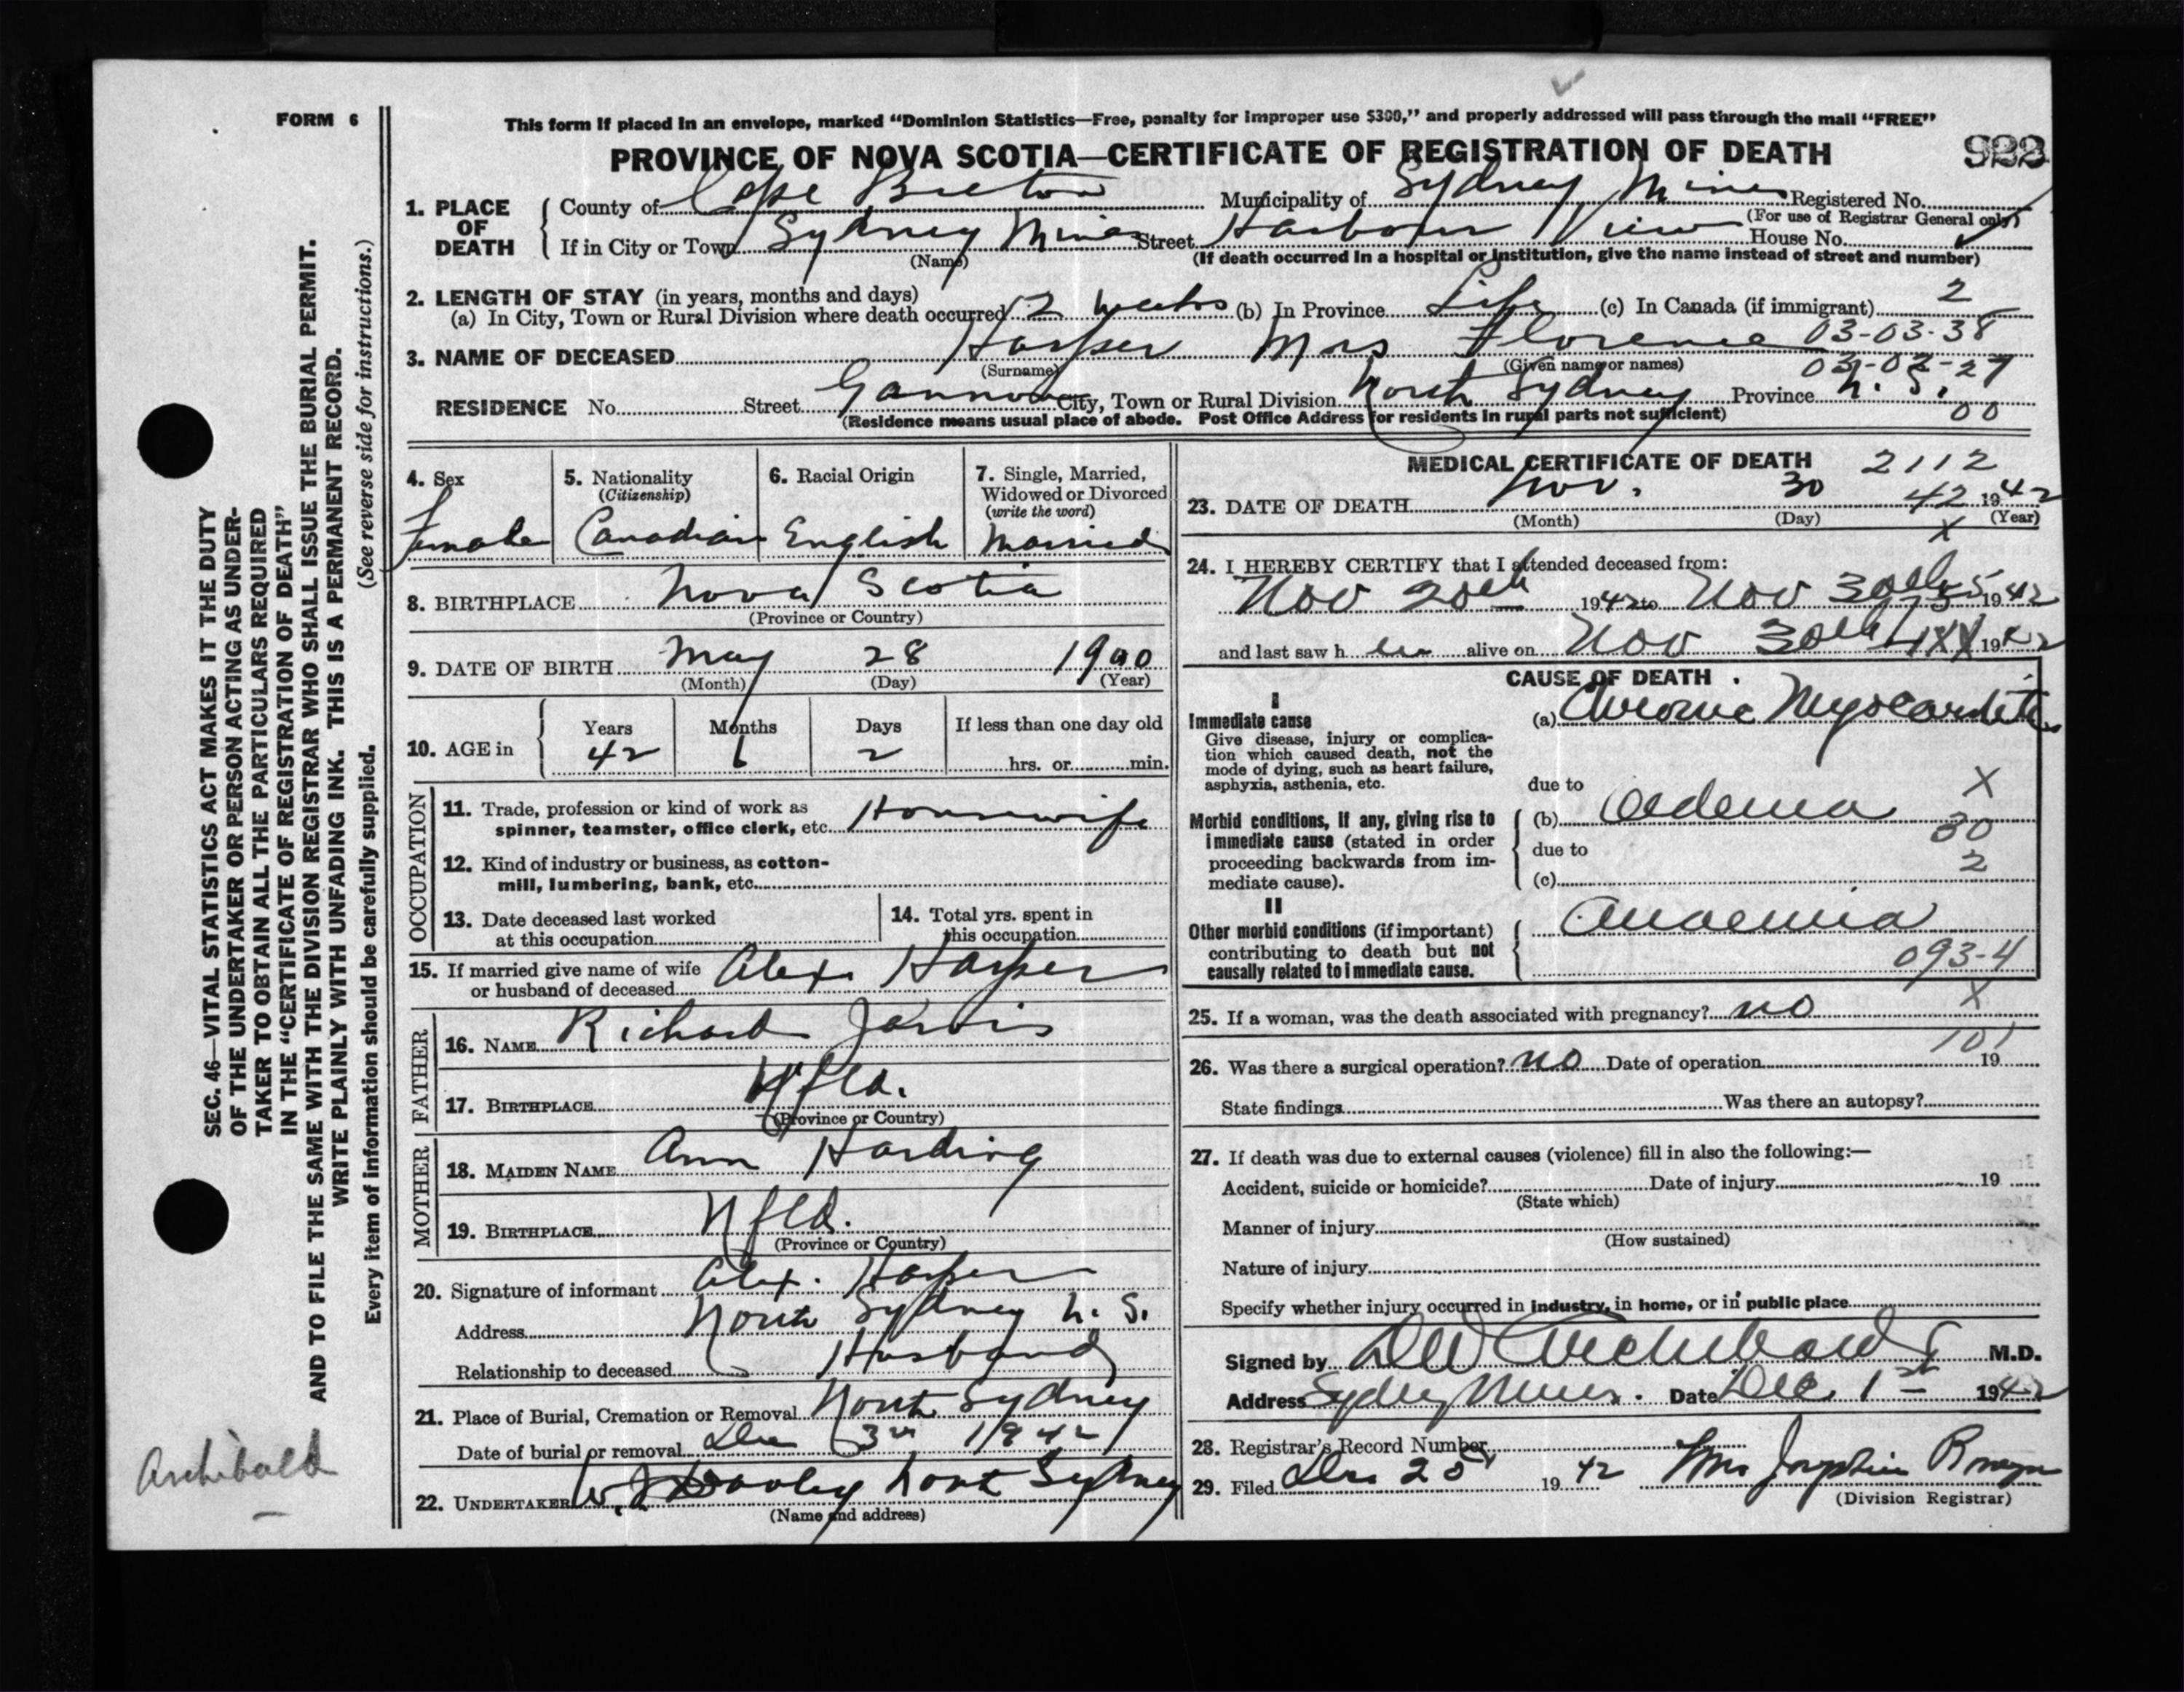 FORM 6
This form if placed in an envelope, marked "Dominion Statistics—Free, penalty for improper use $300," and properly addressed will pass through the mail "FREE"
PROVINCE OF NOVA SCOTIA—CERTIFICATE OF REGISTRATION OF DEATH
1. PLACE OF DEATH
County of Cape Breton Municipality of Sydney Mines Registered No.
(For use of Registrar General only)
If in City or Town Sydney Mines Street Harbour View House No.
(Name) (If death occurred in a hospital or institution, give the name instead of street and number)
2. LENGTH OF STAY (in years, months and days)
(a) In City, Town or Rural Division where death occurred 2 weeks (b) In Province Life (c) In Canada (if immigrant) 2
3. NAME OF DECEASED Harper Mrs Florence 03-03-38
(Surname) (Given name or names)
RESIDENCE No. Street City, Town or Rural Division North Sydney Province N. S.
(Residence means usual place of abode. Post Office Address for residents in rural parts not sufficient) 00
4. Sex Female
5. Nationality (Citizenship) Canadian
6. Racial Origin English
7. Single, Married, Widowed or Divorced (write the word) Married
8. BIRTHPLACE Nova Scotia
(Province or Country)
9. DATE OF BIRTH May 28 1900
(Month) (Day) (Year)
10. AGE in Years 42 Months 6 Days 2 If less than one day old hrs. or min.
OCCUPATION
11. Trade, profession or kind of work as spinner, teamster, office clerk, etc. Housewife
12. Kind of industry or business, as cotton-mill, lumbering, bank, etc.
13. Date deceased last worked at this occupation
14. Total yrs. spent in this occupation
15. If married give name of wife or husband of deceased Alex Harper
FATHER
16. NAME Richard Jarvis
17. BIRTHPLACE Nfld.
(Province or Country)
MOTHER
18. MAIDEN NAME Ann Harding
19. BIRTHPLACE Nfld.
(Province or Country)
20. Signature of informant Alex. Harper
Address North Sydney N. S.
Relationship to deceased Husband
21. Place of Burial, Cremation or Removal North Sydney
Date of burial or removal Dec 3rd 1942
22. UNDERTAKER W. J. Dooley North Sydney
(Name and address)
MEDICAL CERTIFICATE OF DEATH 2112
23. DATE OF DEATH Nov. 30 42 1942
(Month) (Day) (Year)
X
24. I HEREBY CERTIFY that I attended deceased from:
Nov 20th 1942 to Nov 30th 1942
and last saw h er alive on Nov 30th 1942
CAUSE OF DEATH
I
Immediate cause
Give disease, injury or complication which caused death, not the mode of dying, such as heart failure, asphyxia, asthenia, etc.
(a) Chronic Myocarditis
due to X
Morbid conditions, if any, giving rise to immediate cause (stated in order proceeding backwards from immediate cause).
(b) Oedema
30
due to
2
(c)
II
Other morbid conditions (if important) contributing to death but not causally related to immediate cause.
Anaemia
093-4
X
25. If a woman, was the death associated with pregnancy? no
101
26. Was there a surgical operation? no Date of operation 19
State findings Was there an autopsy?
27. If death was due to external causes (violence) fill in also the following:—
Accident, suicide or homicide? Date of injury 19
(State which)
Manner of injury
(How sustained)
Nature of injury
Specify whether injury occurred in industry, in home, or in public place
Signed by D W Archibald M.D.
Address Sydney Mines. Date Dec. 1st 1942
28. Registrar's Record Number
29. Filed Dec 1942 Mrs Josephine
(Division Registrar)
SEC. 46—VITAL STATISTICS ACT MAKES IT THE DUTY
OF THE UNDERTAKER OR PERSON ACTING AS UNDER-
TAKER TO OBTAIN ALL THE PARTICULARS REQUIRED
IN THE "CERTIFICATE OF REGISTRATION OF DEATH"
AND TO FILE THE SAME WITH THE DIVISION REGISTRAR WHO SHALL ISSUE THE BURIAL PERMIT.
WRITE PLAINLY WITH UNFADING INK. THIS IS A PERMANENT RECORD.
(See reverse side for instructions.)
Every item of information should be carefully supplied.
Archibald